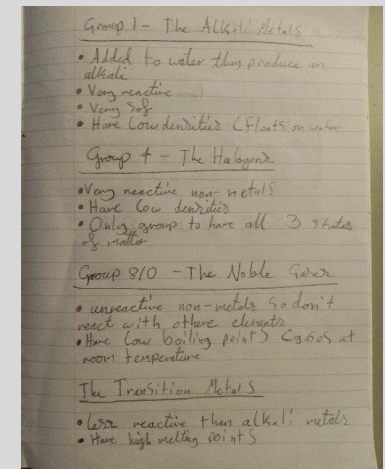 Group 1 - The Alkali Metals
• Added to water they produce an
alkali
• Very reactive
• Very Soft
• Have Low densities (floats on water
Group 7 - The Halogens
• Very reactive non-metals
• Have Low densities
• Only group to have all 3 states
of matter
Group 8/0 - The Noble Gases
• unreactive non-metals so don't
react with others elements
• Have low boiling points Gases at
room temperature
The Transition Metals
• Less reactive than alkali metals
• Have high melting points